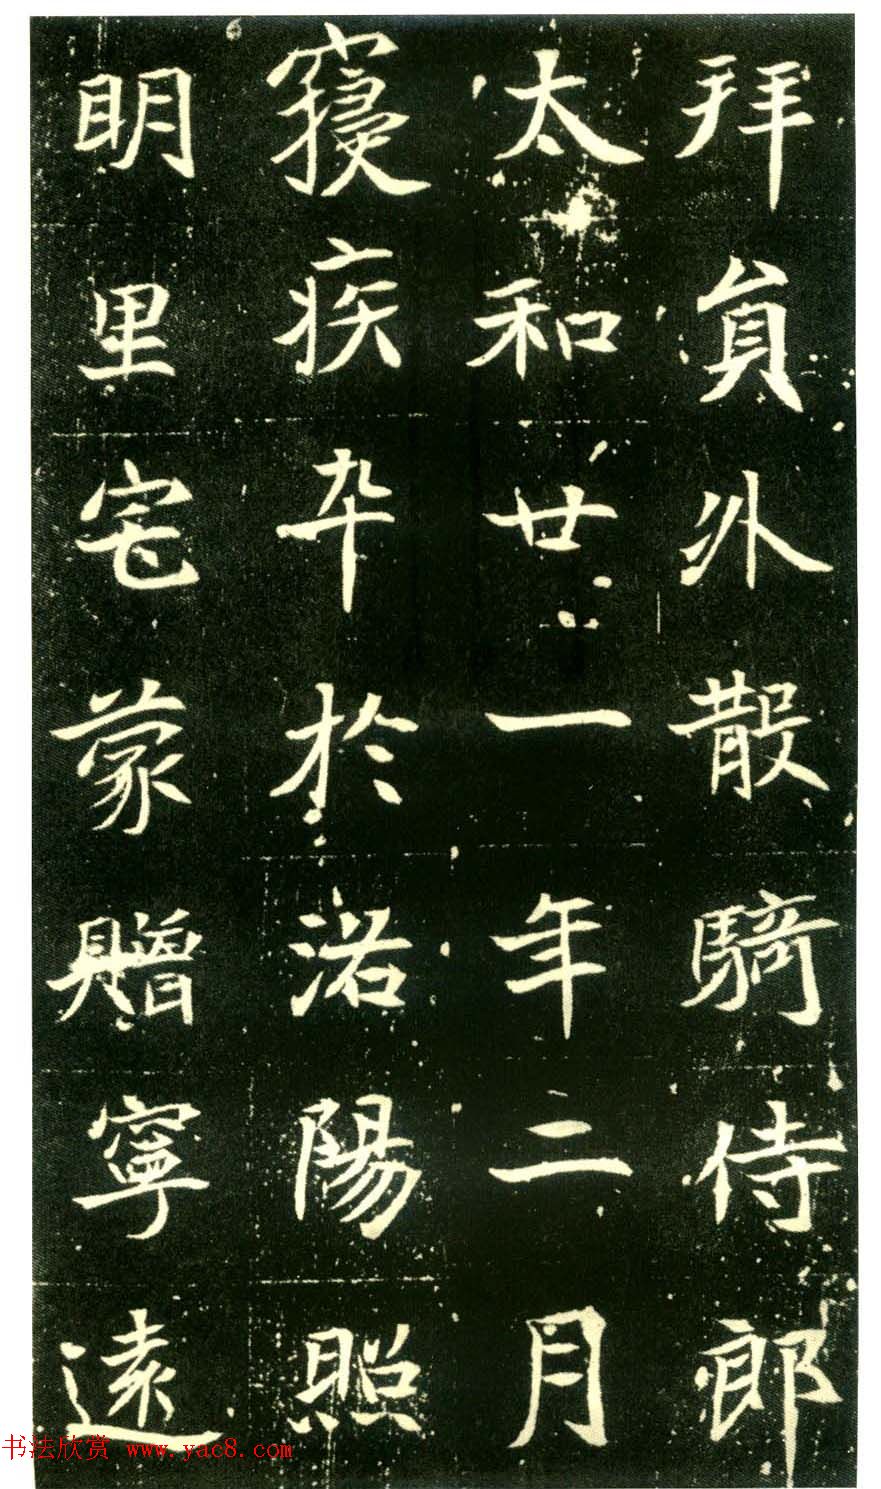 拜員外散騎侍郎
太和廿一年二月
寑疾卒於洛陽照
明里宅蒙贈寧遠
书法欣赏 www.yac8.com